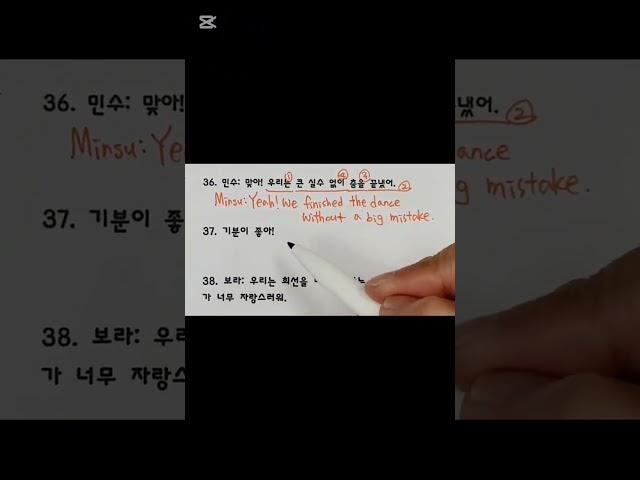 36. 민수: 맞아! 우리는 큰 실수 없이 춤을 끝냈어.
① ④ ③ ②
Minsu: Yeah! We finished the dance
without a big mistake.
37. 기분이 좋아!
38. 보라: 우리는 희선을
가 너무 자랑스러워.